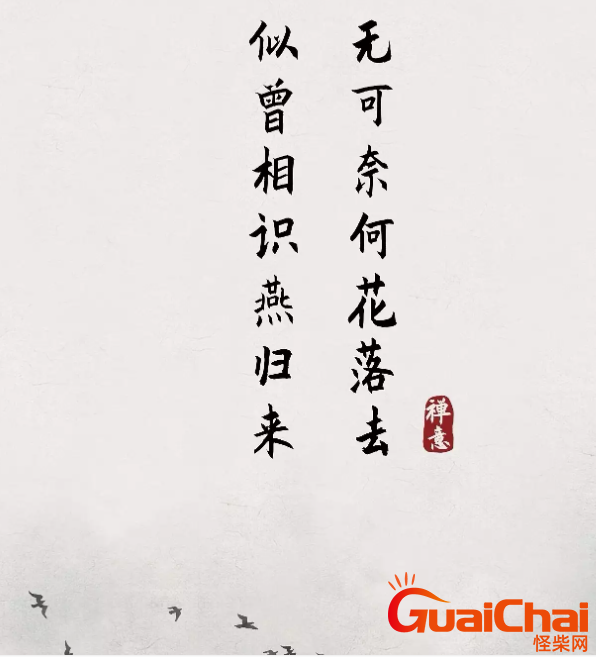 无可奈何花落去
似曾相识燕归来
禅意
GuaiChai
怪柴网